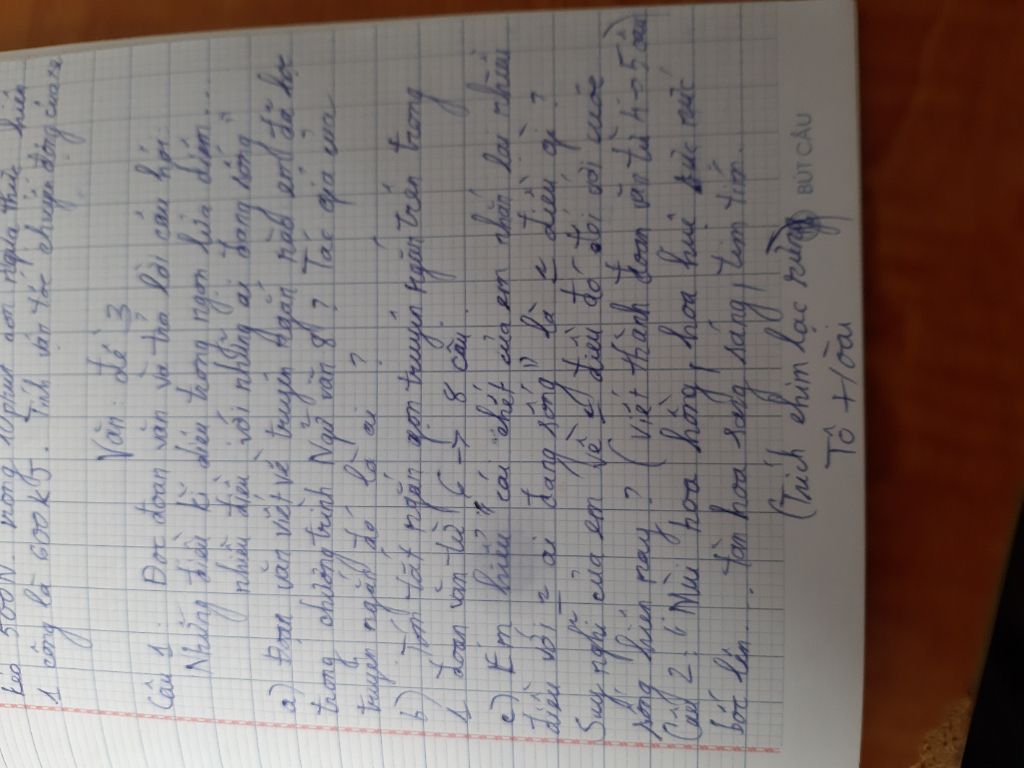 kéo 500N trong 10 phút con ngựa thực hiện
1 công là 600 kJ. Tính vận tốc chuyển động của xe
Văn: đề 3
Câu 1: Đọc đoạn văn và trả lời câu hỏi:
Những điều kì diệu trong ngọn lửa diêm....
nhiều điều với những ai đang sống"
a) Đoạn văn viết về truyện ngắn nào em đã học
trong chương trình Ngữ văn 8? Tác giả của
truyện ngắn đó là ai?
b) Tóm tắt ngắn gọn truyện ngắn trên trong
1 đoạn văn từ (6 → 8 câu).
c) Em hiểu "cái chết của em nhắn lại nhiều
điều với ai đang sống" là điều gì?
Suy nghĩ của em về điều đó đối với cuộc
sống hiện nay? (Viết thành đoạn văn từ 4→5 câu)
Câu 2: "Mùi hoa hồng, hoa huệ sực nức
bốc lên.... tàn hoa sang sáng, tim tím.
(Trích chim lạc rừng)
Tô Hoài
BÚT CÂU